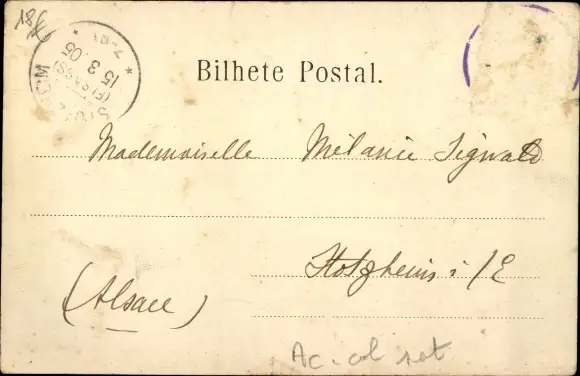 18
15 3 05
7-8V
(ELSASS)
Bilhete Postal.
Mademoiselle Mélanie Sigwald
Stotzheim i/E
(Alsace)
Ac-col set